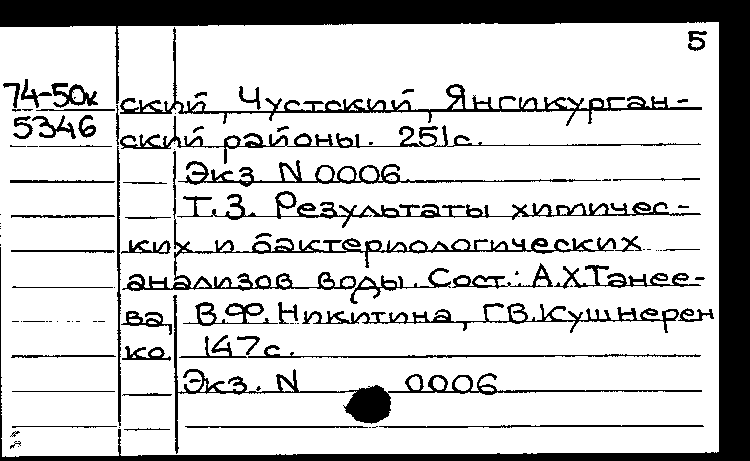 5
74-50к ский, Чустский, Янгикурган-
5346 ский районы. 251с.
Экз N 0006
Т.3. Результаты химичес-
ких и бактериологических
анализов воды. Сост.: А.Х.Танее-
ва, В.Ф.Никитина, Г.В.Кушнерен
ко. 147с.
Экз. N 0006